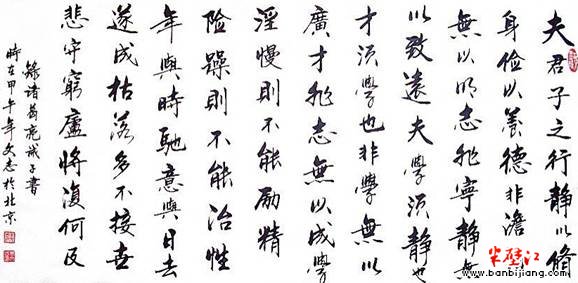 夫君子之行静以脩
身俭以養德非澹
無以明志非寧静無
以致遠夫學須静也
才須學也非學無以
廣才非志無以成學
淫慢則不能励精
险躁則不能治性
年與時馳意與日去
遂成枯落多不接世
悲守窮廬將復何及
録諸葛亮诫子書
時在甲午年文志於北京
半壁江
www.banbijiang.com